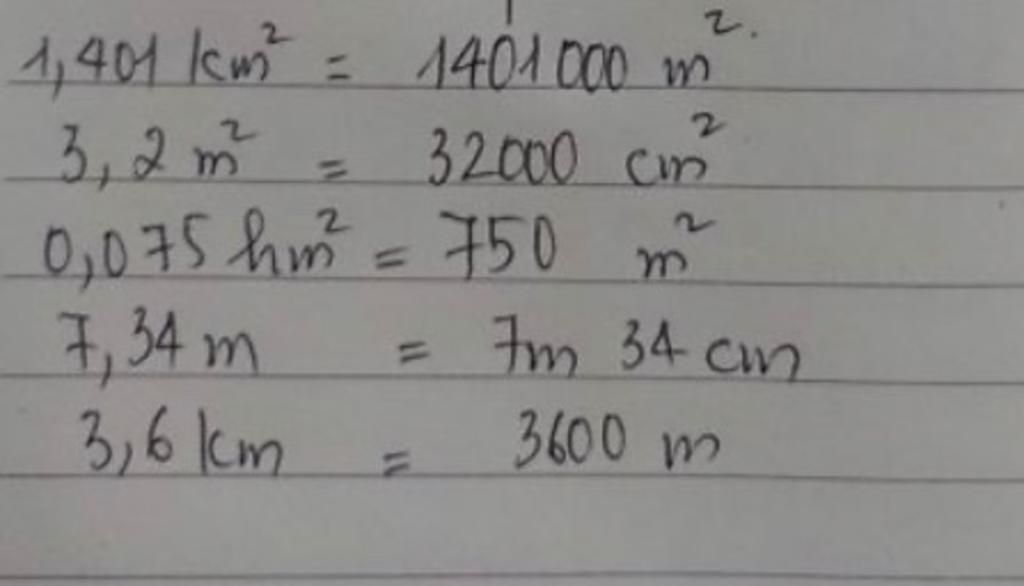 1,401 km² = 1401000 m².
3,2 m² = 32000 cm²
0,075 hm² = 750 m²
7,34 m = 7m 34 cm
3,6 km = 3600 m